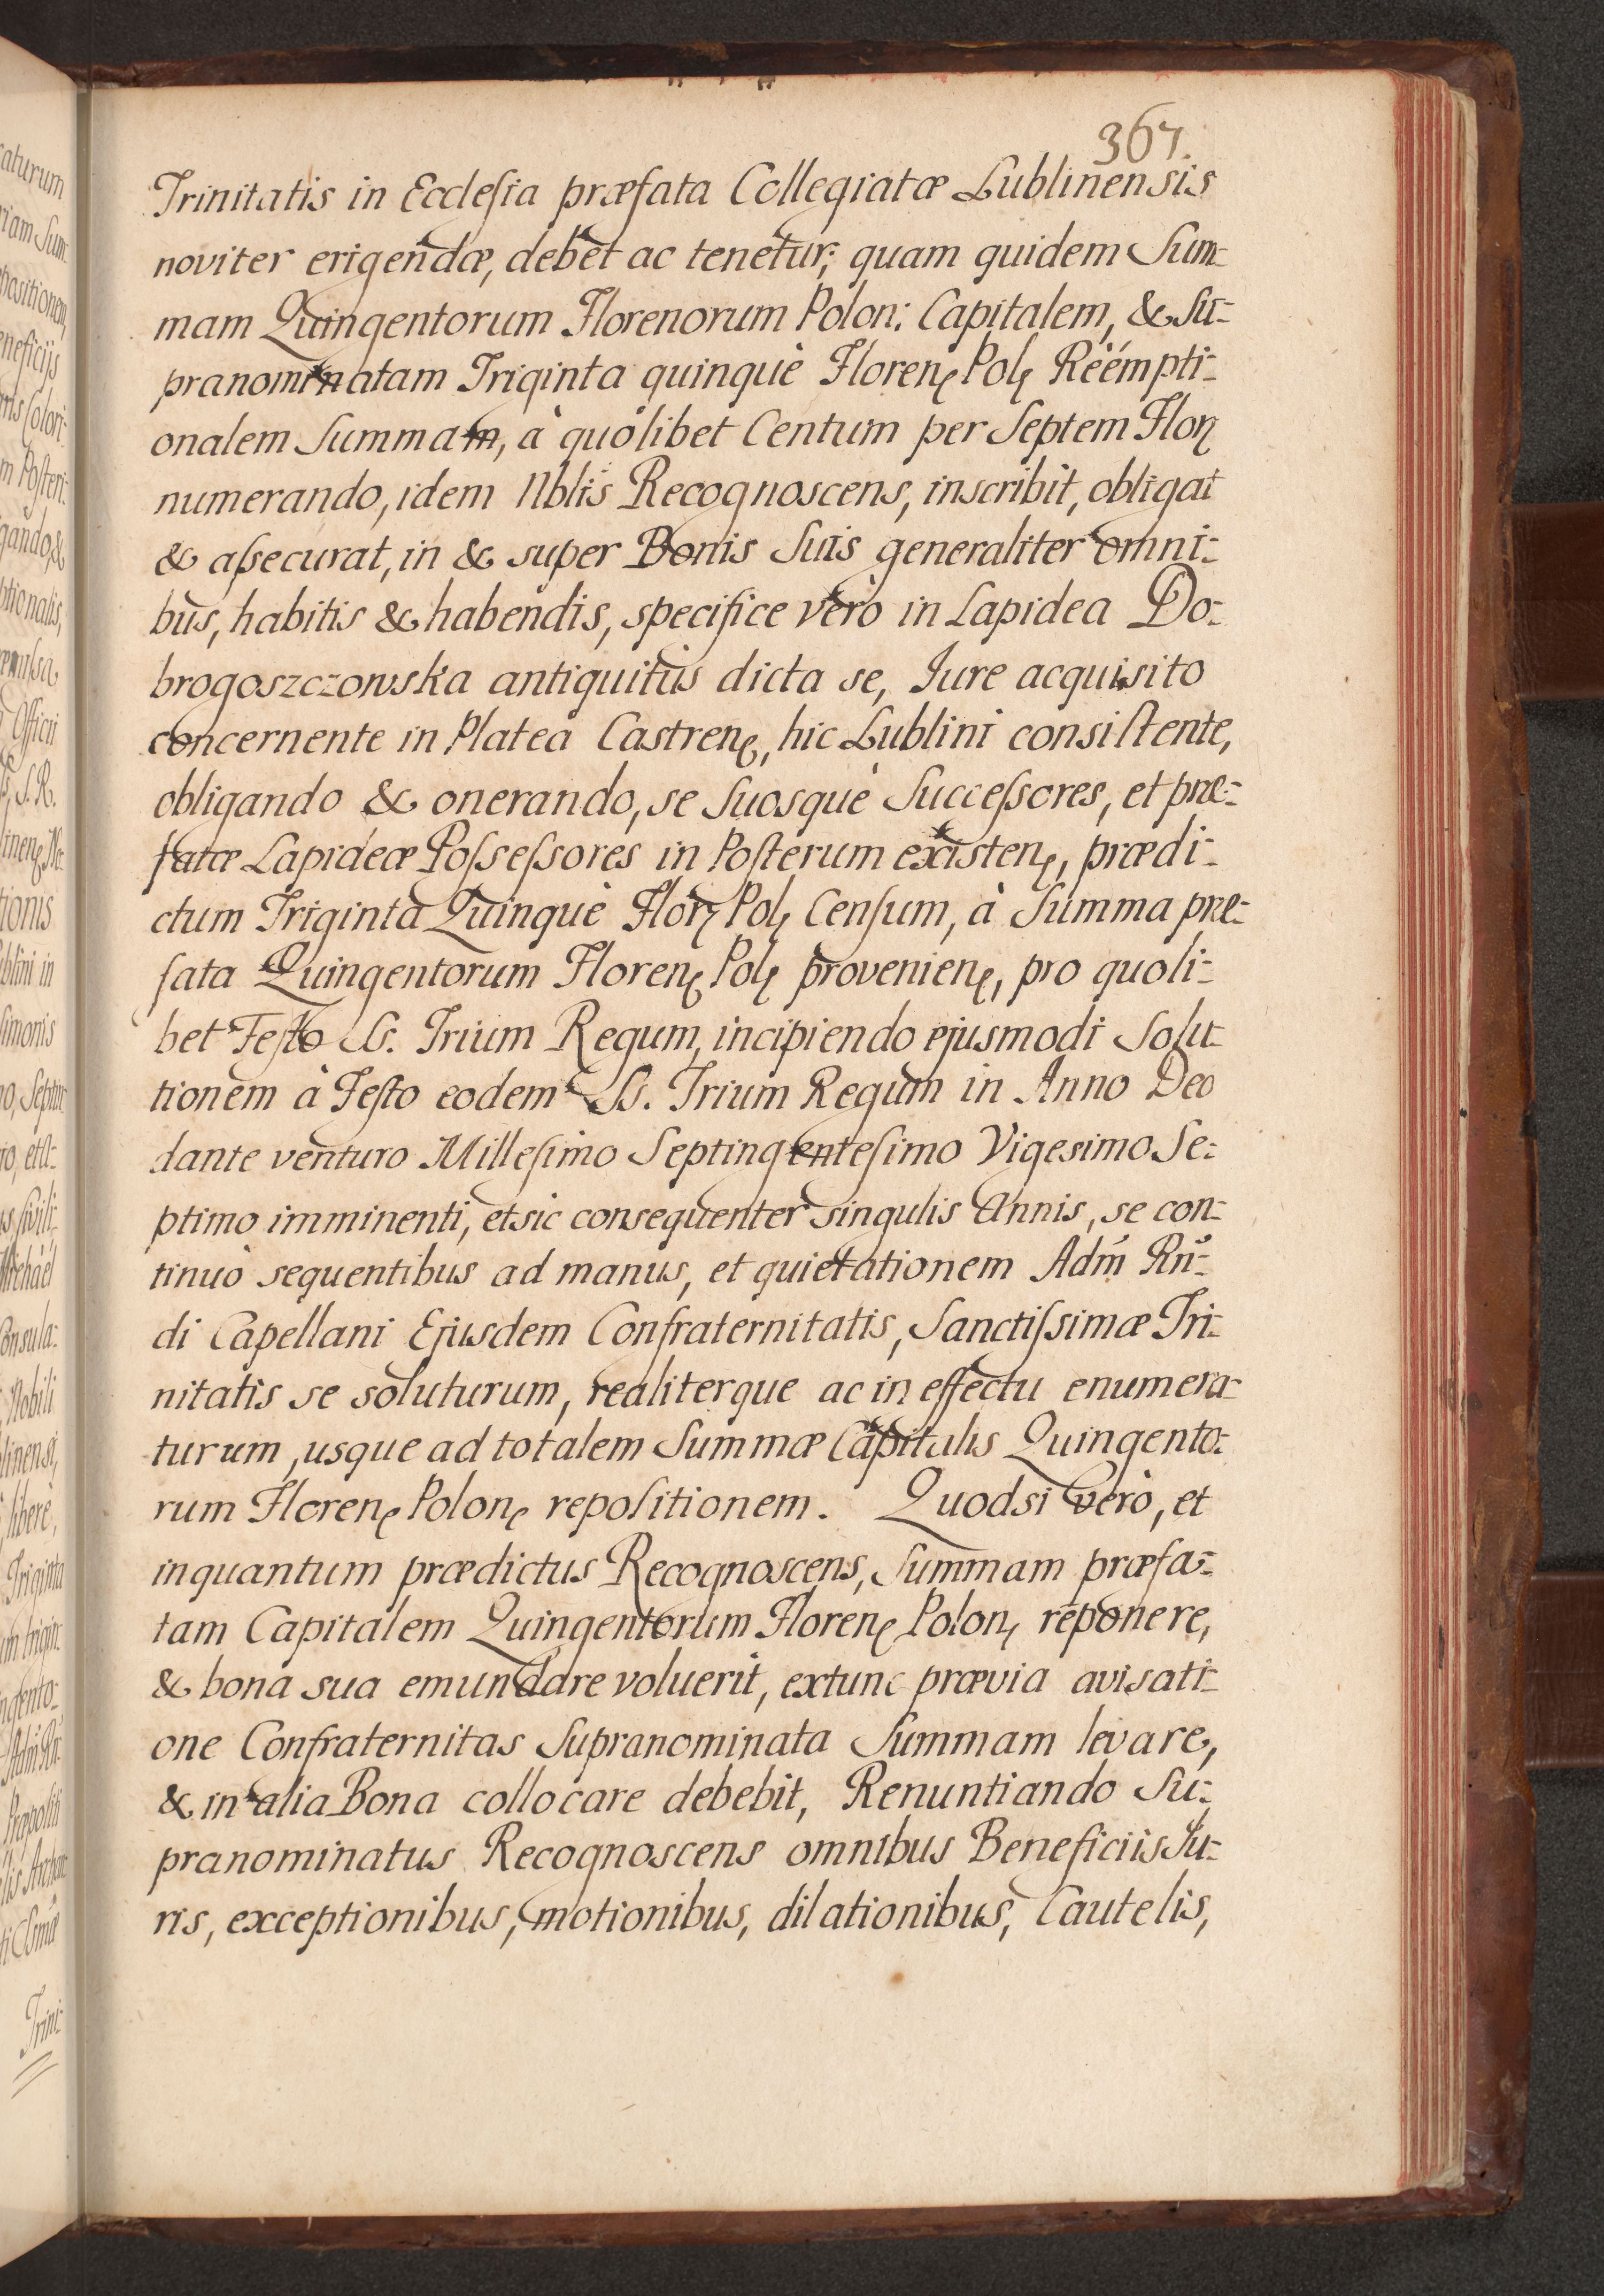 367.
Trinitatis in Ecclesia præfata Collegiatæ Lublinensis
noviter erigendæ, debet ac tenetur; quam quidem Sum-
mam Quingentorum Florenorum Polon: Capitalem, & Su-
pranominatam Triginta quinquè Floren Pol Reémpti-
onalem Summam, à quólibet Centum per Septem Flor
numerando, idem Nblis Recognoscens, inscribit, obligat
& assecurat, in & super Bonis Suis generaliter omni-
bus, habitis & habendis, specifice verò in Lapidea Do-
brogoszczowska antiquitùs dicta se, Jure acquisito
concernente in Platea Castren, hic Lublini consistente,
obligando & onerando, se Suosquè Successores, et præ-
fatæ Lapideæ Possessores in Posterum existen, prædi-
ctum Triginta Quinquè Flor Pol Censum, à Summa præ-
fata Quingentorum Floren Pol provenien, pro quoli-
bet Festo SS. Trium Regum, incipiendo ejusmodi Solu-
tionem à Festo eodem SS. Trium Regum in Anno Deo
dante venturo Millesimo Septingentesimo Vigesimo Se-
ptimo imminenti, etsic consequenter singulis Annis, se con-
tinuò sequentibus ad manus, et quietationem Adm̃ Rñ-
di Capellani Ejusdem Confraternitatis, Sanctissimæ Tri-
nitatis se soluturum, realiterque ac in effectu enumera-
turum, usque ad totalem Summæ Capitalis Quingento-
rum Floren Polon repositionem. Quodsi verò, et
inquantum prædictus Recognoscens, Summam præfa-
tam Capitalem Quingentorum Floren Polon reponere,
& bona sua emundare voluerit, extunc prævia avisati-
one Confraternitas Supranominata Summam levare,
& in alia Bona collocare debebit, Renuntiando Su-
pranominatus Recognoscens omnibus Beneficiis Ju-
ris, exceptionibus, motionibus, dilationibus, Cautelis,